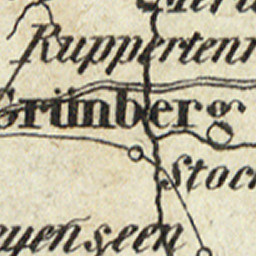 Ruppertenr
Grünberg
Stoc
eyenseen